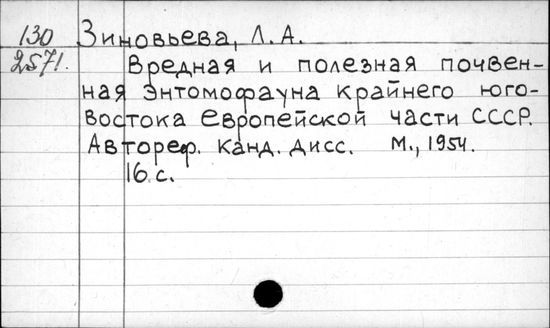 130 Зиновьева, Л. А.
2571. Вредная и полезная почвен-
ная энтомофауна крайнего юго-
востока европейской части СССР.
Автореф. канд. дисс. М., 1954.
16 с.